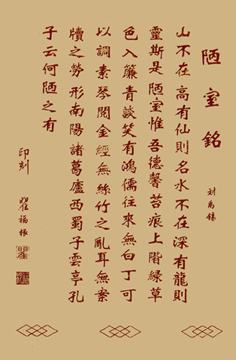 陋室銘
刘禹锡
山不在高有仙則名水不在深有龍則
靈斯是陋室惟吾德馨苔痕上階綠草
色入簾青談笑有鴻儒往來無白丁可
以調素琴閱金經無絲竹之亂耳無案
牘之勞形南陽諸葛廬西蜀子雲亭孔
子云何陋之有
印刻